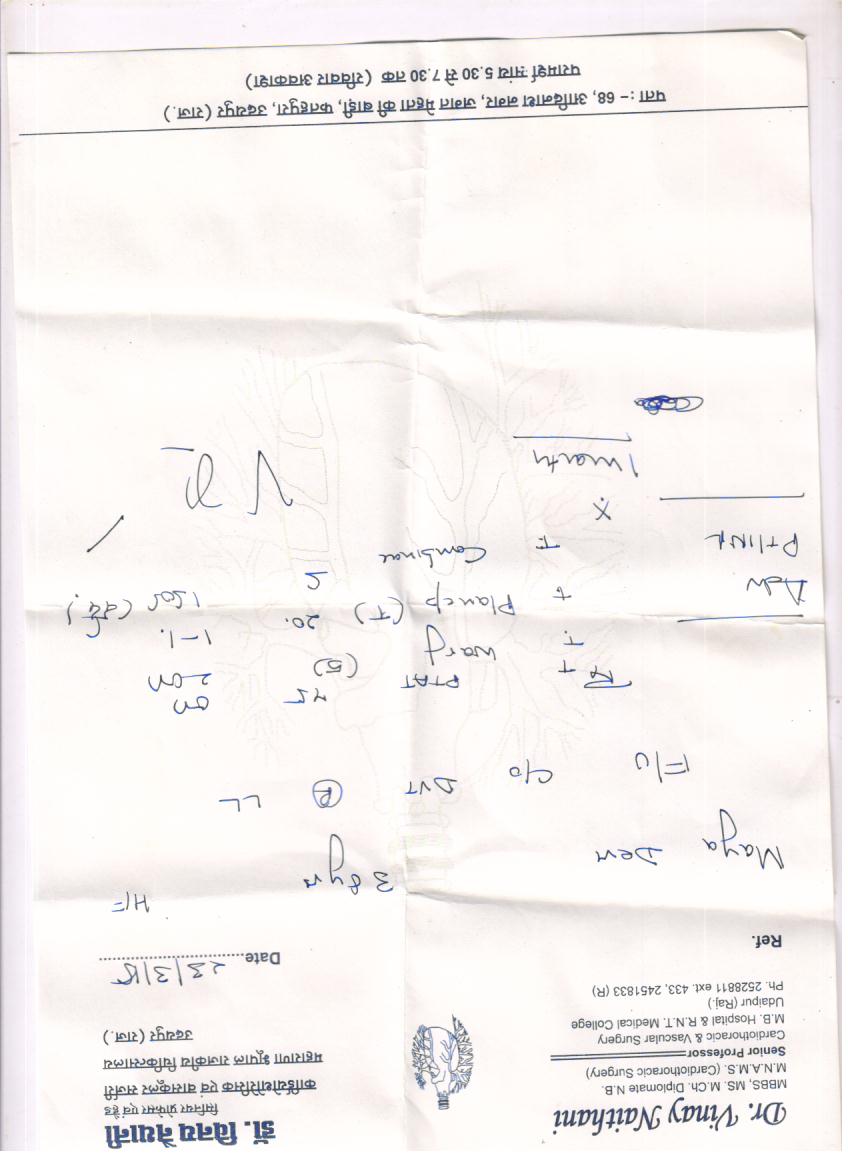 Dr. Vinay Naithani
MBBS, MS. M.Ch. Diplomate N.B.
M.N.A.M.S. (Cardiothoracic Surgery)
Senior Professor
Cardiothoracic & Vascular Surgery
M.B. Hospital & R.N.T. Medical College
Udaipur (Raj.)
Ph. 2528811 ext. 433, 2451833 (R)
डॉ. विनय नैथानी
सिनियर प्रोफेसर एवं हैड
कार्डियोथोरेसिक एवं वासकूलर सर्जरी
महाराणा भूपाल राजकीय चिकित्सालय
उदयपुर (राज.)
Ref.
Date 23/3/15
H/F
Maya Devi 38yr
F/U C/O DVT (R) LL
Rx
T
T. Warf (5)
T Planep (T) 20.
T Combinae
X
1 month
Adv
PT/INR
पता :- 68, आदिनाथ नगर, जगत मेहता की बाड़ी, फतहपुरा, उदयपुर (राज.)
परामर्श सांय 5.30 से 7.30 तक (रविवार अवकाश)